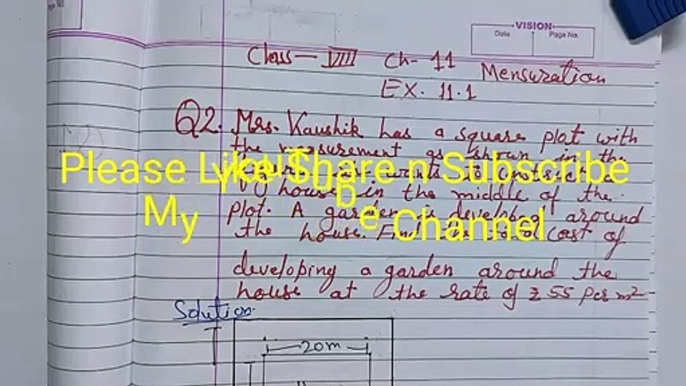 VISION
Date
Page No.
Class - VIII Ch- 11 Mensuration
EX. 11.1
Q2. Mrs. Kaushik has a square plot with
the measurement as shown in the
Please Like Share n Subscribe
house in the middle of the
My YouTube Channel
plot. A garden is developed around
the house. Find the total cost of
developing a garden around the
house at the rate of ₹ 55 per m²
Solution
20m